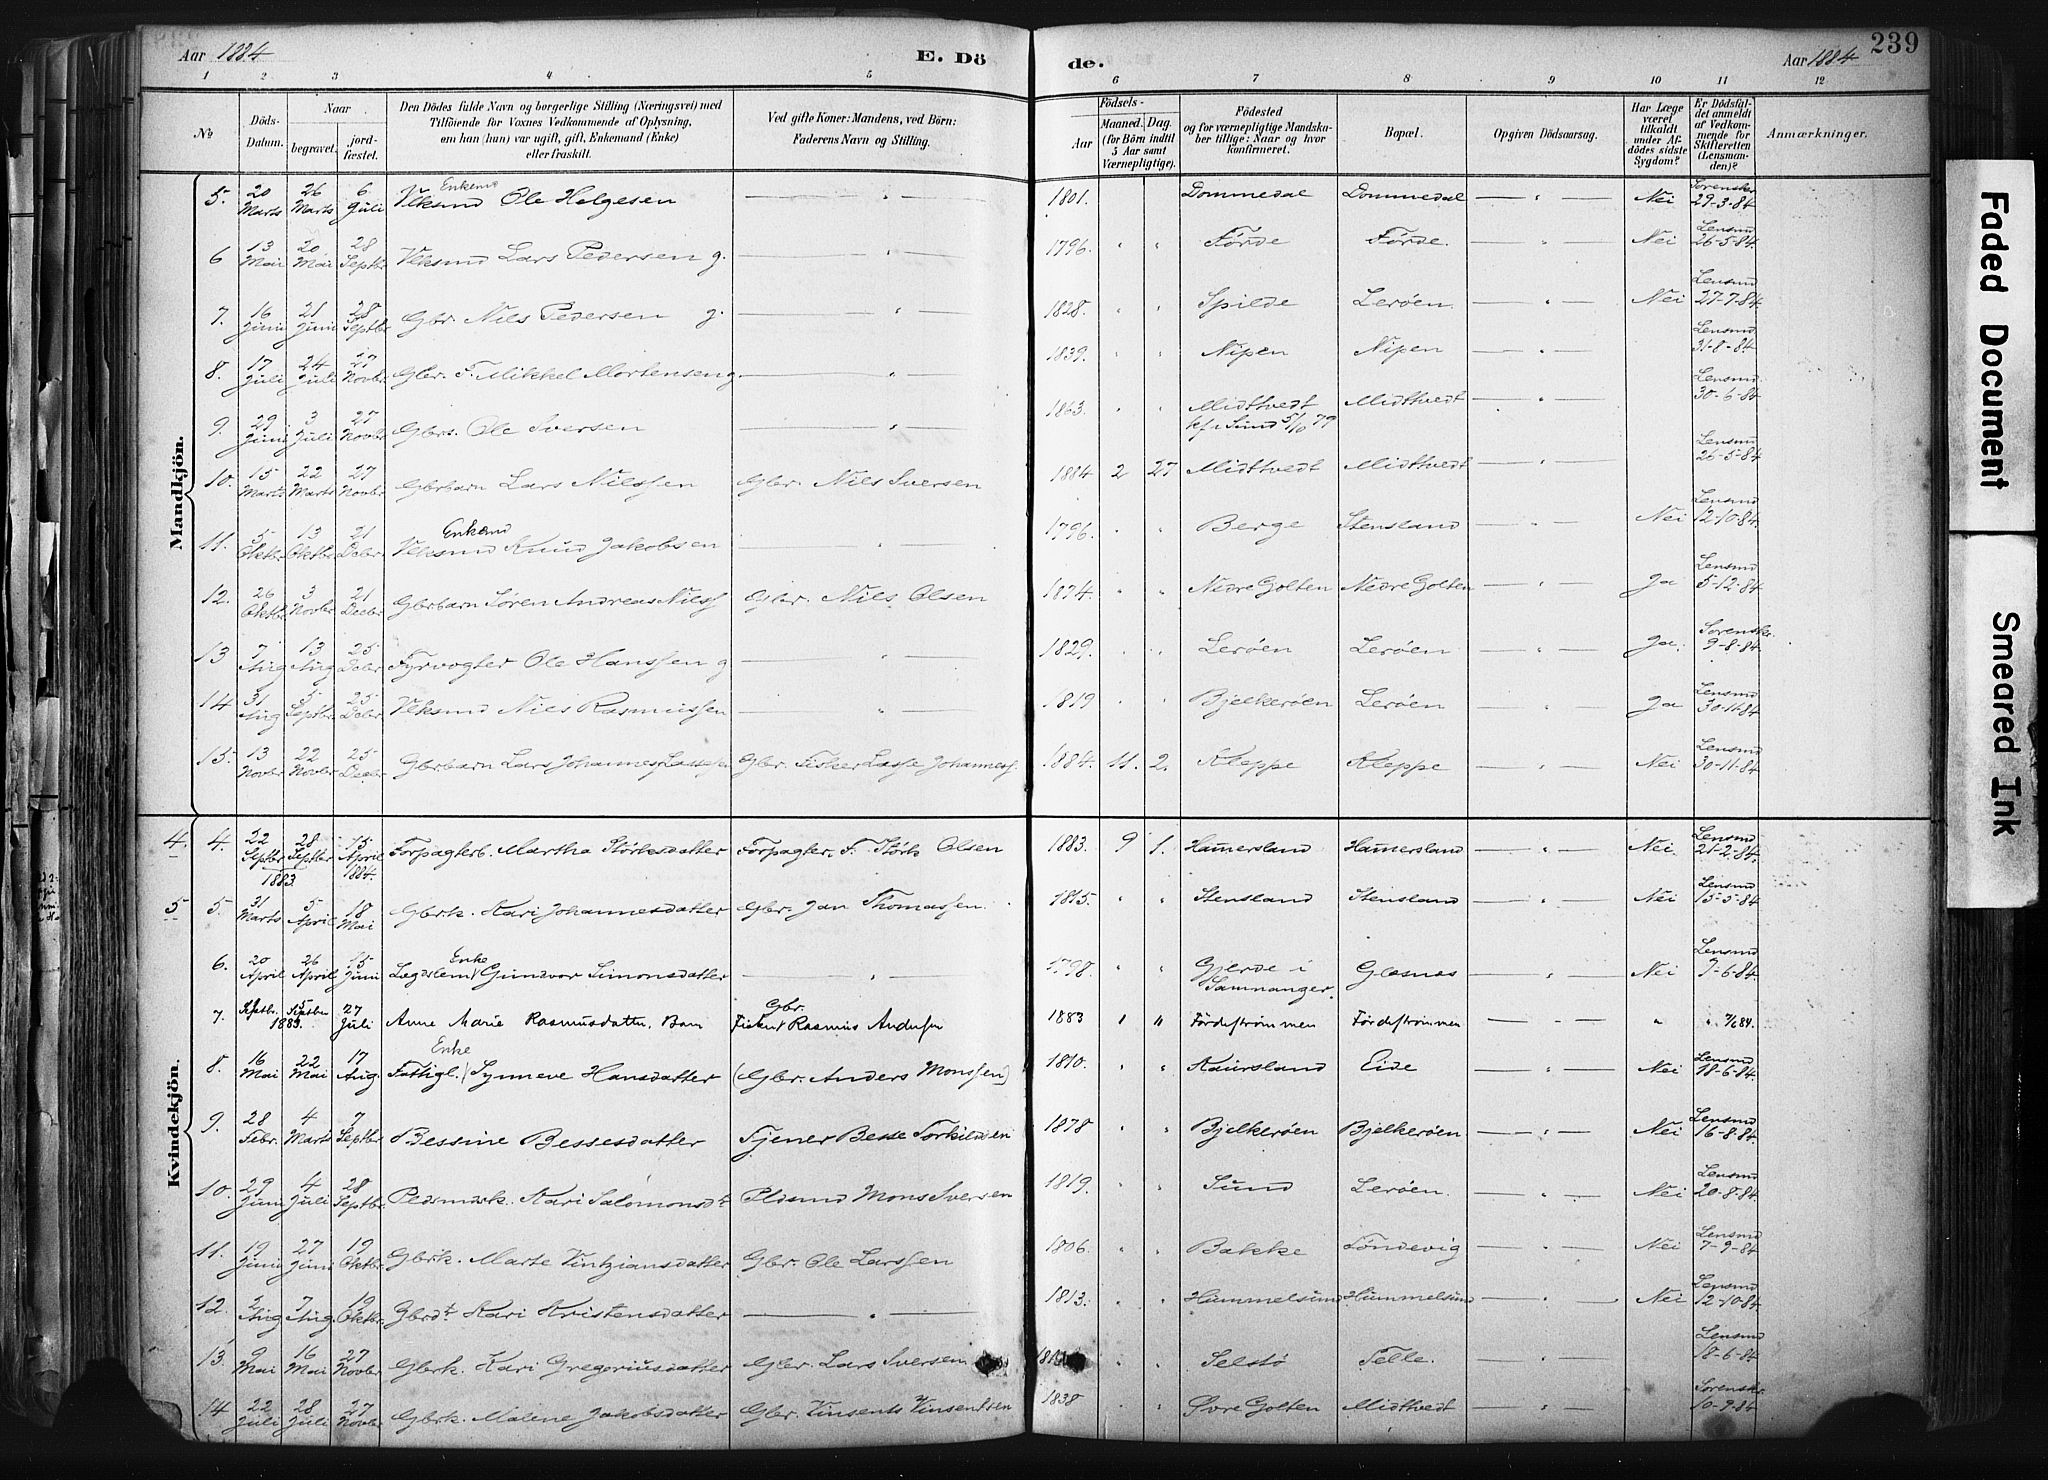 Aar 1884 E. Dö de. Aar 1884 239
1 2 3 4 5 6 7 8 9 10 11 12
No
Döds-Datum.
Naar
begravet.
jord-fæstet.
Den Dödes fulde Navn og borgerlige Stilling (Næringsvei) med
Tilföiende for Voxnes Vedkommende af Oplysning,
om han (hun) var ugift, gift, Enkemand (Enke)
eller fraskilt.
Ved gifte Koner: Mandens, ved Börn:
Faderens Navn og Stilling.
Födsels-
Aar
Maaned. Dag.
(for Börn indtil
5 Aar samt
Værnepligtige).
Födested
og for værnepligtige Mandska-
ber tillige: Naar og hvor
konfirmeret.
Bopæl.
Opgiven Dödsaarsag.
Har Læge
været
tilkaldt
under Af-
dödes sidste
Sygdom?
Er Dödsfal-
det anmeldt
af Vedkom-
mende for
Skifteretten
(Lensman-
den)?
Anmærkninger.
Mandkjön.
5. 20 Marts 26 Marts 6 Juli Vlksmd Enkem Ole Helgesen — " — 1801. Dommedal Dommedal — " — Nei Sorenskr 29-3-84
6 13 Mai 20 Mai 28 Septbr Vlksmd Lars Pedersen g. — " — 1796. " " Förde Förde. — " — Nei Lensmd 26-5-84
7. 16 Juni 21 Juni 28 Septbr Gbr. Nils Pedersen g. — " — 1828. " " Spilde Leröen — " — Nei Lensmd 27-7-84
8. 17 Juli 24 Juli 27 Novbr. Gbr. F. Mikkel Mortensen g — " — 1839. " " Nipen Nipen — " — Lensmd 31-8-84
9. 29 Juni 3 Juli 27 Novbr Gbrs. Ole Iversen — " — 1863. " " Midttvedt Midttvedt — " — Lensmd 30-6-84
kf. i Sund 5/10 79
10. 15 Marts 22 Marts 27 Novbr Gbrbarn Lars Nilssen Gbr. Nils Iversen 1884 2 27 Midttvedt Midttvedt — " — Lensmd 26-5-84
11. 5 Oktbr. 13 Oktbr 21 Debr Vlksmd Enkemd Knud Jakobsen — " — 1796. " " Berge Stensland — " — Nei Lensmd 12-10-84
12. 26 Oktbr 3 Novbr 21 Decbr Gbrbarn Sören Andreas Nilss Gbr. Nils Olsen 1874. " " Nedre Golten Nedre Golten — " — Ja Lensmd 5-12-84
13 7 Aug 13 Aug 25 Debr Fyrvogter Ole Hanssen g — " — 1829. " " Leröen Leröen — " — Ja. Sorenskr. 9-8-84
14 31 Aug 5 Septbr 25 Debr Vlksmd Nils Rasmussen — " — 1819 " " Bjelkeröen Leröen — " — Ja Lensmd 30-11-84
15. 13 Novbr 22 Novbr 25 Decbr Gbrbarn Lars Johannes Lassesen Gbr. Fisker Lasse Johanness. 1884. 11. 2. Kleppe Kleppe — " — Nei Lensmd 30-11-84
Kvindekjön.
4. 4. 22 Septbr 28 Septbr 1883. 15 April 1884. Forpagterb. Martha Störksdatter Forpagter. F. Störk Olsen 1883. 9 1. Hamersland Hamersland — " — Nei. Lensmd 21-2-84.
5 5. 31 Marts 5 April 18 Mai Gbrk. Kari Johannesdatter Gbr. Jan Thomassen. 1815. " " Stensland Stensland — " — Nei Lensmd 15-5-84
6. 20 April 26 April 15 Juni Lægdslem Enke Gundvor Simonsdatter — " — 1798. " " Gjerde i Samnanger. Glesnæs — " — Nei Lensmd 7-6-84
7. Septbr. 5 Septbr 1883. 27 Juli Anne Marie Rasmusdatter. Barn Gbr. Fisker Rasmus Andersen 1883 " " Fördeströmmen Fördeströmmen — " — " " 7/6 84.
8. 16 Mai 22 Mai 17 Aug. Fattigl. Enke Synneve Hansdatter (Gbr. Anders Monssen) 1810. " " Kaursland Eide — " — Nei Lensmd 18-6-84
9. 28 Febr. 4 Marts 7 Septbr Bessine Bessesdatter Tjener Besse Torkildsen 1878 " " Bjelkeröen Bjelkeröen — " — Nei Lensmd 16-8-84
10. 29 Juni 4 Juli 28 Septbr. Pldsmdsk. Kari Salomonsdt Pldsmd Mons Iversen 1819. " " Sund Leröen. — " — Nei Lensmd 20-8-84
11. 19 Juni 27 Juni 19 Oktbr Gbrk. Marte Vintziansdatter Gbr. Ole Larssen 1806. " " Bakke Töndevig — " — Nei Lensmd 7-9-84
12. 2 Aug 7 Aug. 19 Oktbr Gbrdt Kari Kristensdatter — " — 1813. " " Hummelsund Hummelsund — " — Nei Lensmd 12-10-84
13. 9 Mai 16 Mai 27 Novbr Gbrk. Kari Gregoriusdatter Gbr. Lars Iversen " " Selstö Telle. — " — Lensmd 18-6-84
14. 22 Juli 28 Juli 27 Novbr Gbrk. Malene Jakobsdatter Gbr. Vinsents Vinsentsen 1838 " " Øvre Golten Midttvedt — " — Sorenskr. 10-9-84
Faded Document
Smeared Ink